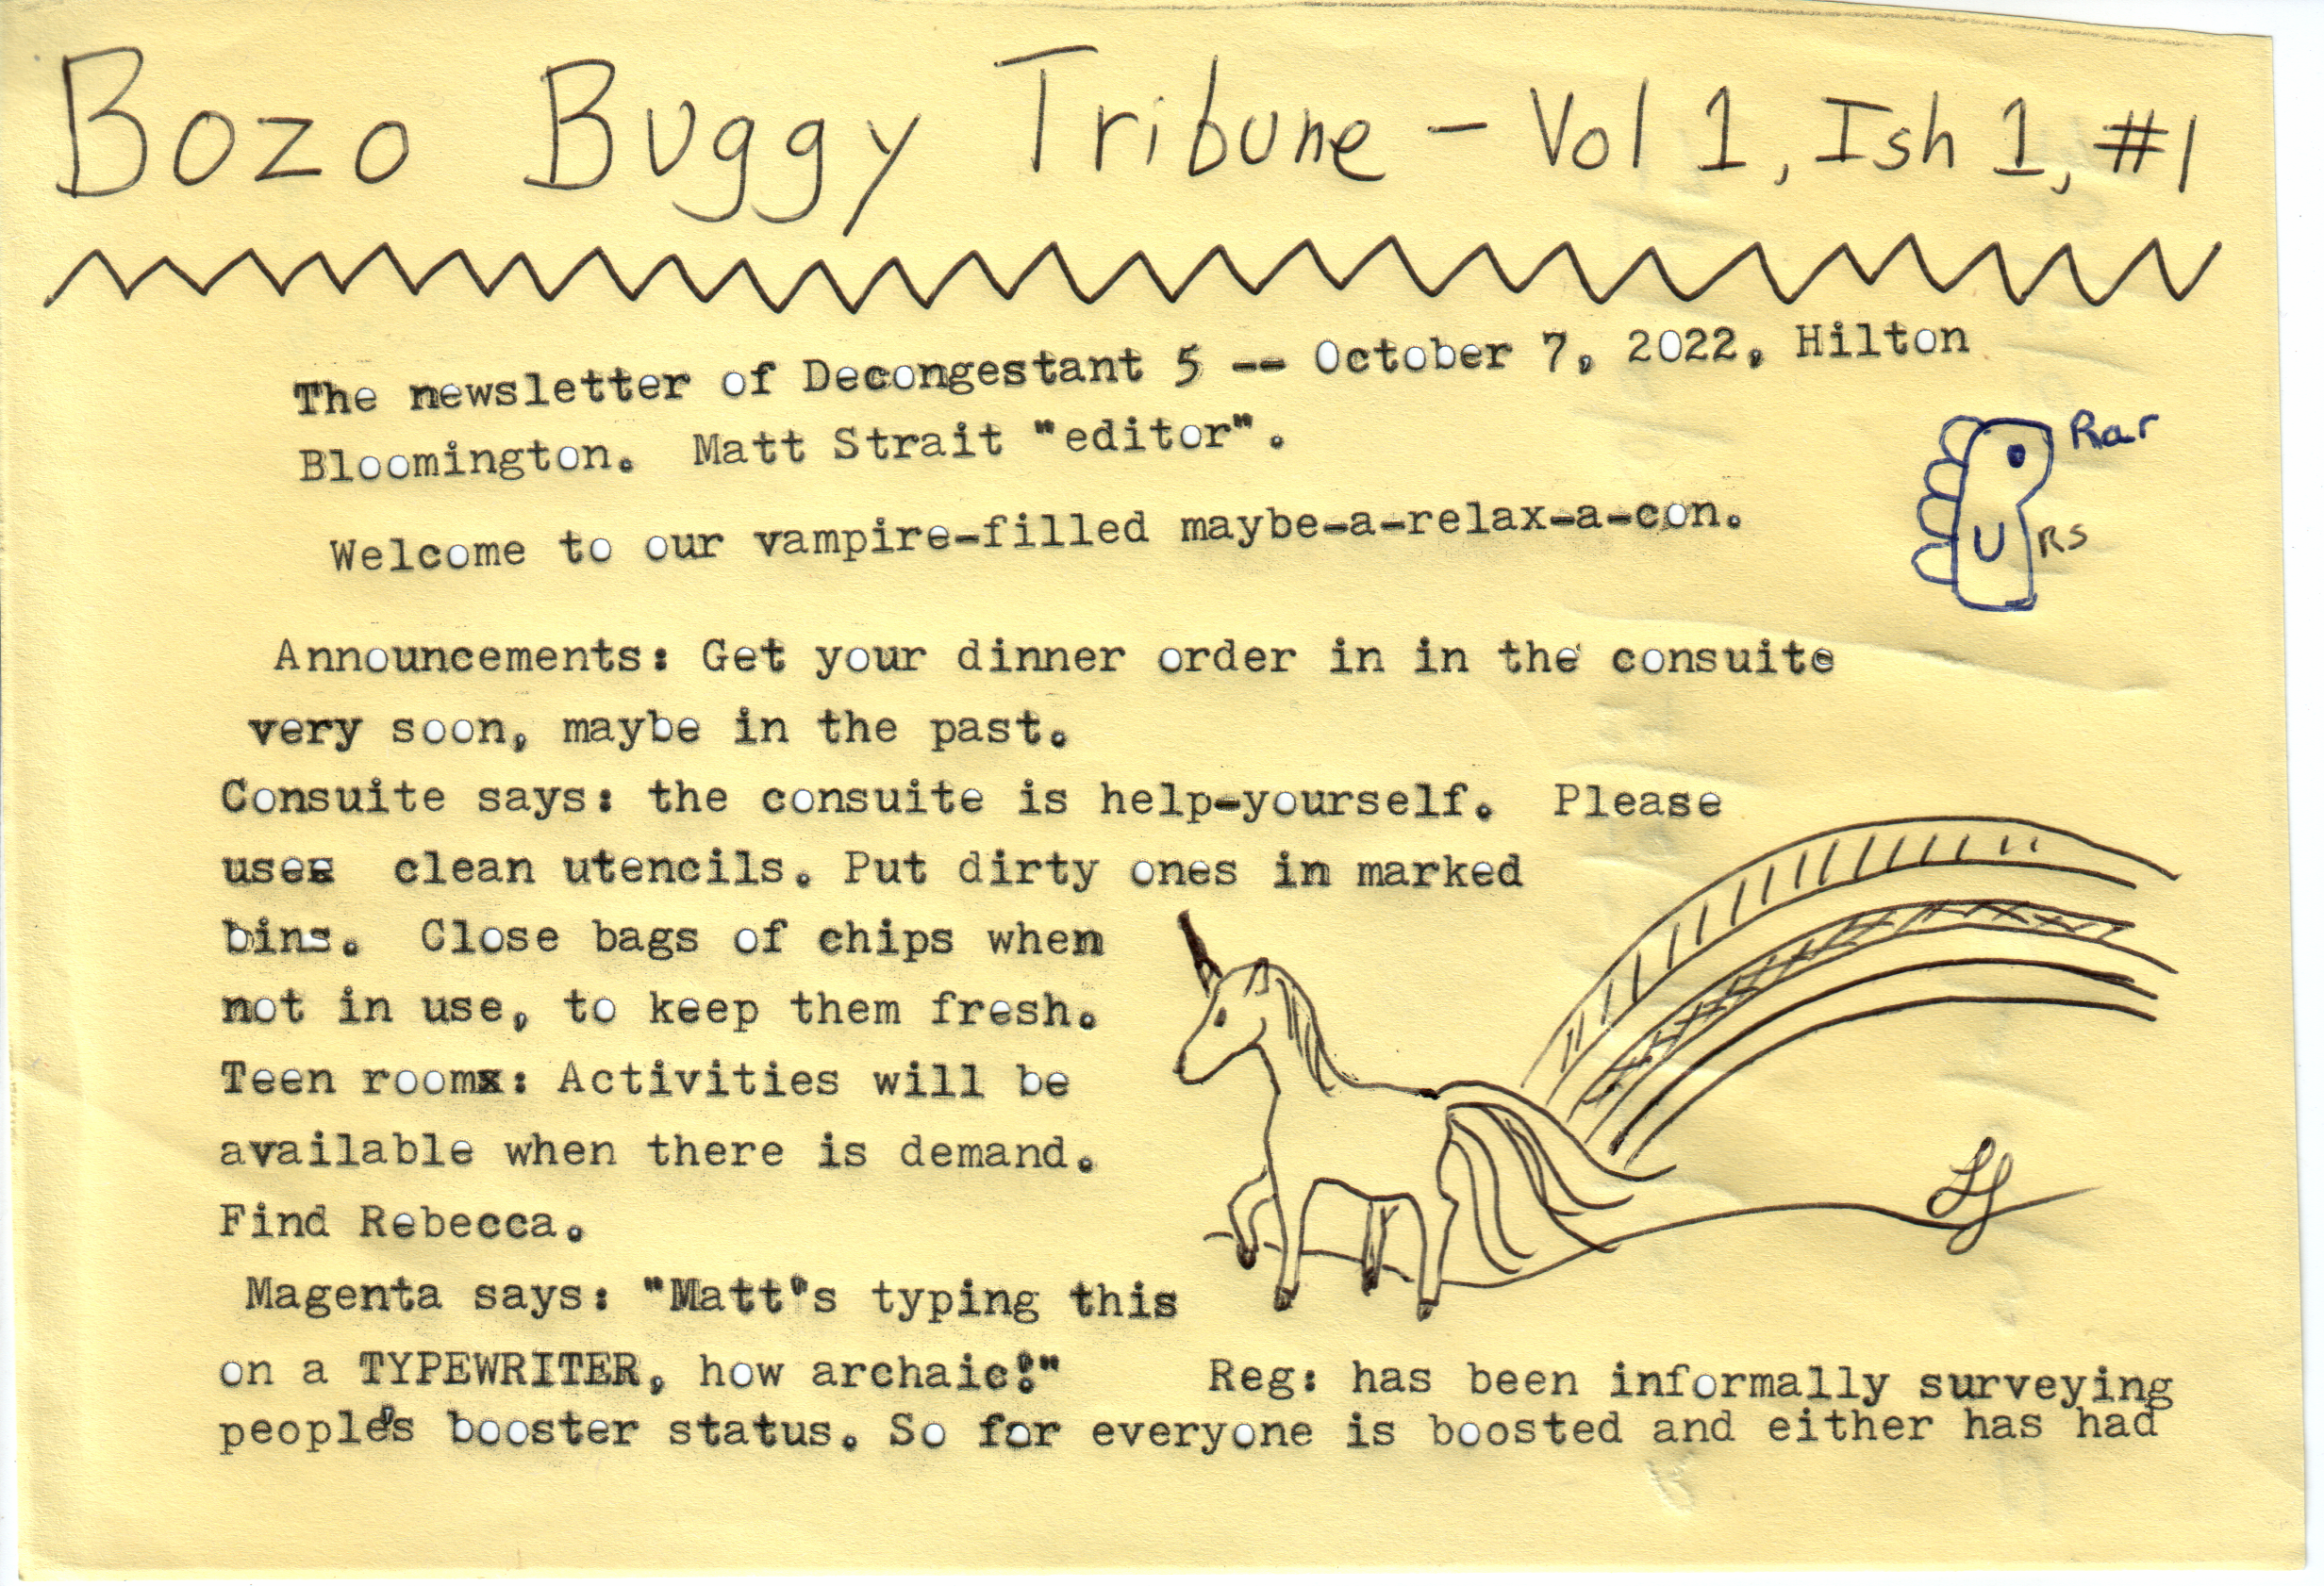 Bozo Buggy Tribune - Vol 1, Ish 1, #1
The newsletter of Decongestant 5 -- October 7, 2022, Hilton
Bloomington. Matt Strait "editor".
Rar
Welcome to our vampire-filled maybe-a-relax-a-con.
U RS
Announcements: Get your dinner order in in the consuite
very soon, maybe in the past.
Consuite says: the consuite is help-yourself. Please
use clean utencils. Put dirty ones in marked
bins. Close bags of chips when
not in use, to keep them fresh.
Teen room: Activities will be
available when there is demand.
Find Rebecca.
Magenta says: "Matt's typing this
on a TYPEWRITER, how archaic!"
Reg: has been informally surveying
people's booster status. So far everyone is boosted and either has had